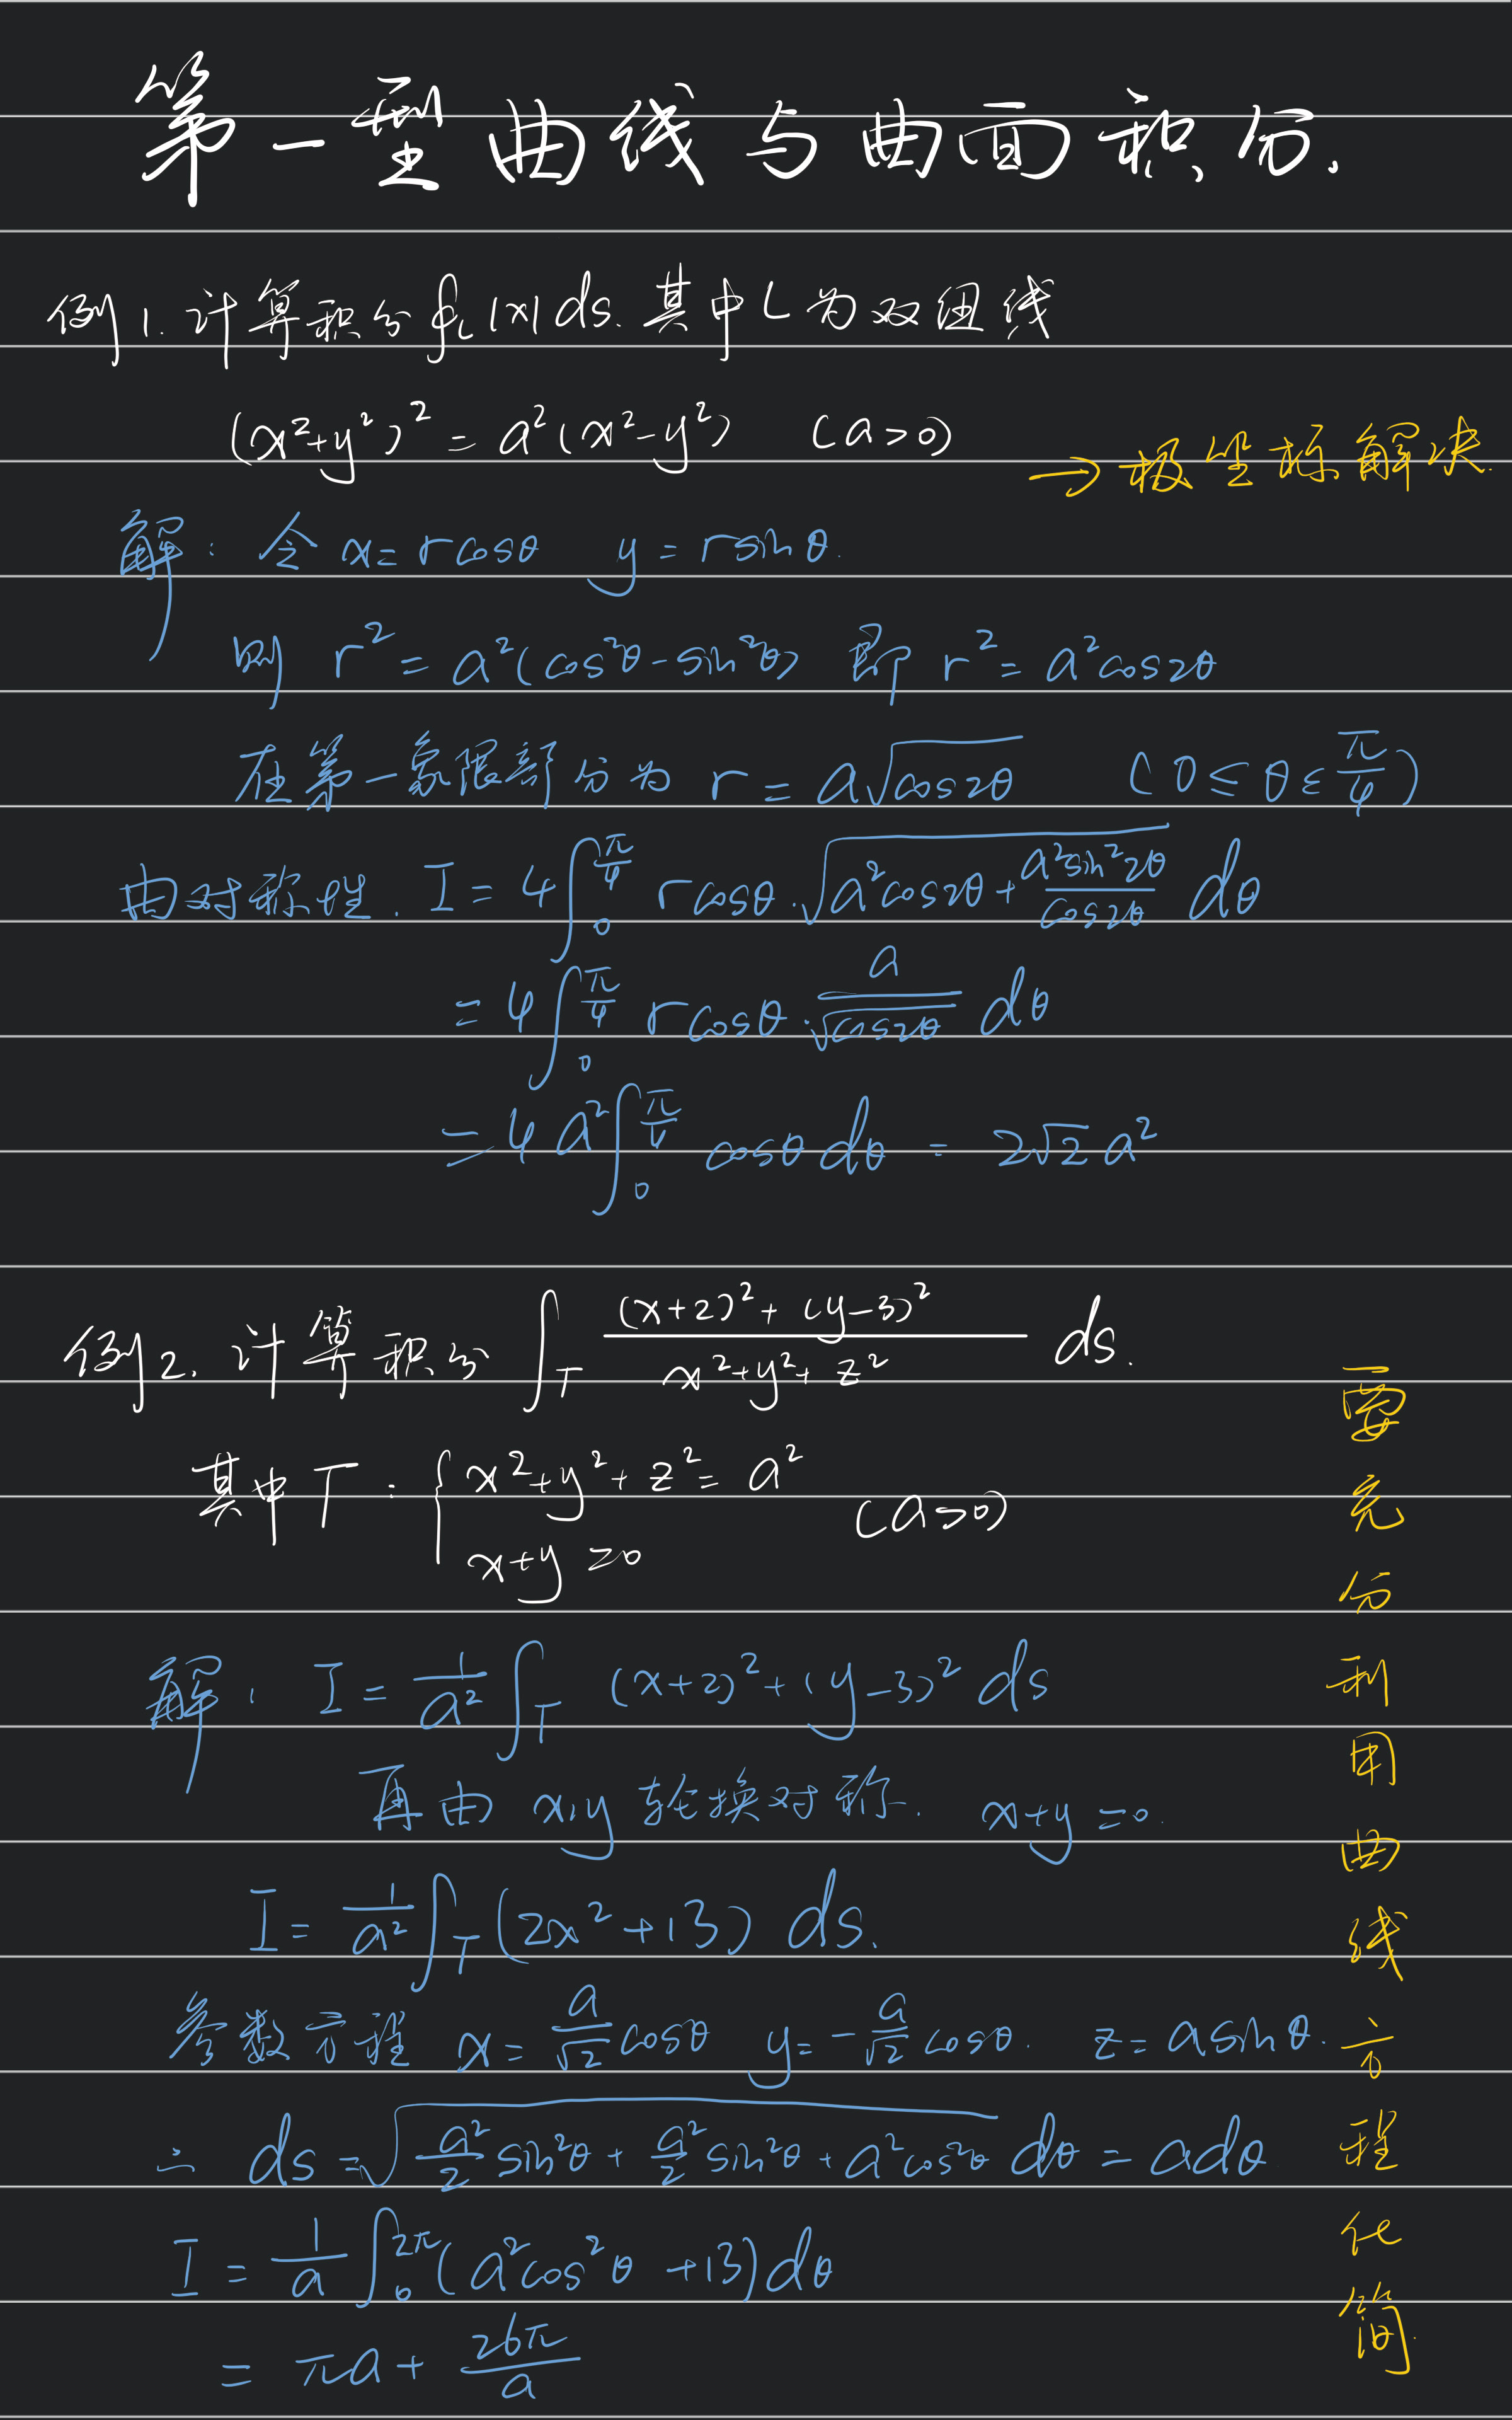 第一型曲线与曲面积分.
例1. 计算积分 ∮_L |x| ds. 其中 L 为双纽线
(x²+y²)² = a²(x²-y²) (a>0)
→ 极坐标解决.
解: 令 x = rcosθ y = rsinθ.
则 r² = a²(cos²θ - sin²θ) 即 r² = a²cos2θ
在第一象限部分为 r = a√cos2θ (0 ≤ θ ≤ π/4)
由对称性. I = 4∫₀^(π/4) rcosθ·√(a²cos2θ + a²sin²2θ/cos2θ) dθ
= 4∫₀^(π/4) rcosθ·a/√cos2θ dθ
= 4a²∫₀^(π/4) cosθ dθ = 2√2 a²
例2. 计算积分 ∫_T ((x+2)² + (y-3)²)/(x²+y²+z²) ds.
其中 T: { x²+y²+z² = a²
x+y = 0 (a>0)
解: I = 1/a² ∫_T (x+2)² + (y-3)² ds
再由 x,y 轮换对称. x+y = 0.
I = 1/a² ∫_T (2x²+13) ds.
参数方程 x = a/√2 cosθ y = -a/√2 cosθ. z = asinθ.
∴ ds = √(a²/2 sin²θ + a²/2 sin²θ + a²cos²θ) dθ = adθ
I = 1/a ∫₀^(2π) (a²cos²θ + 13) dθ
= πa + 26π/a
需充分利用曲线方程化简.